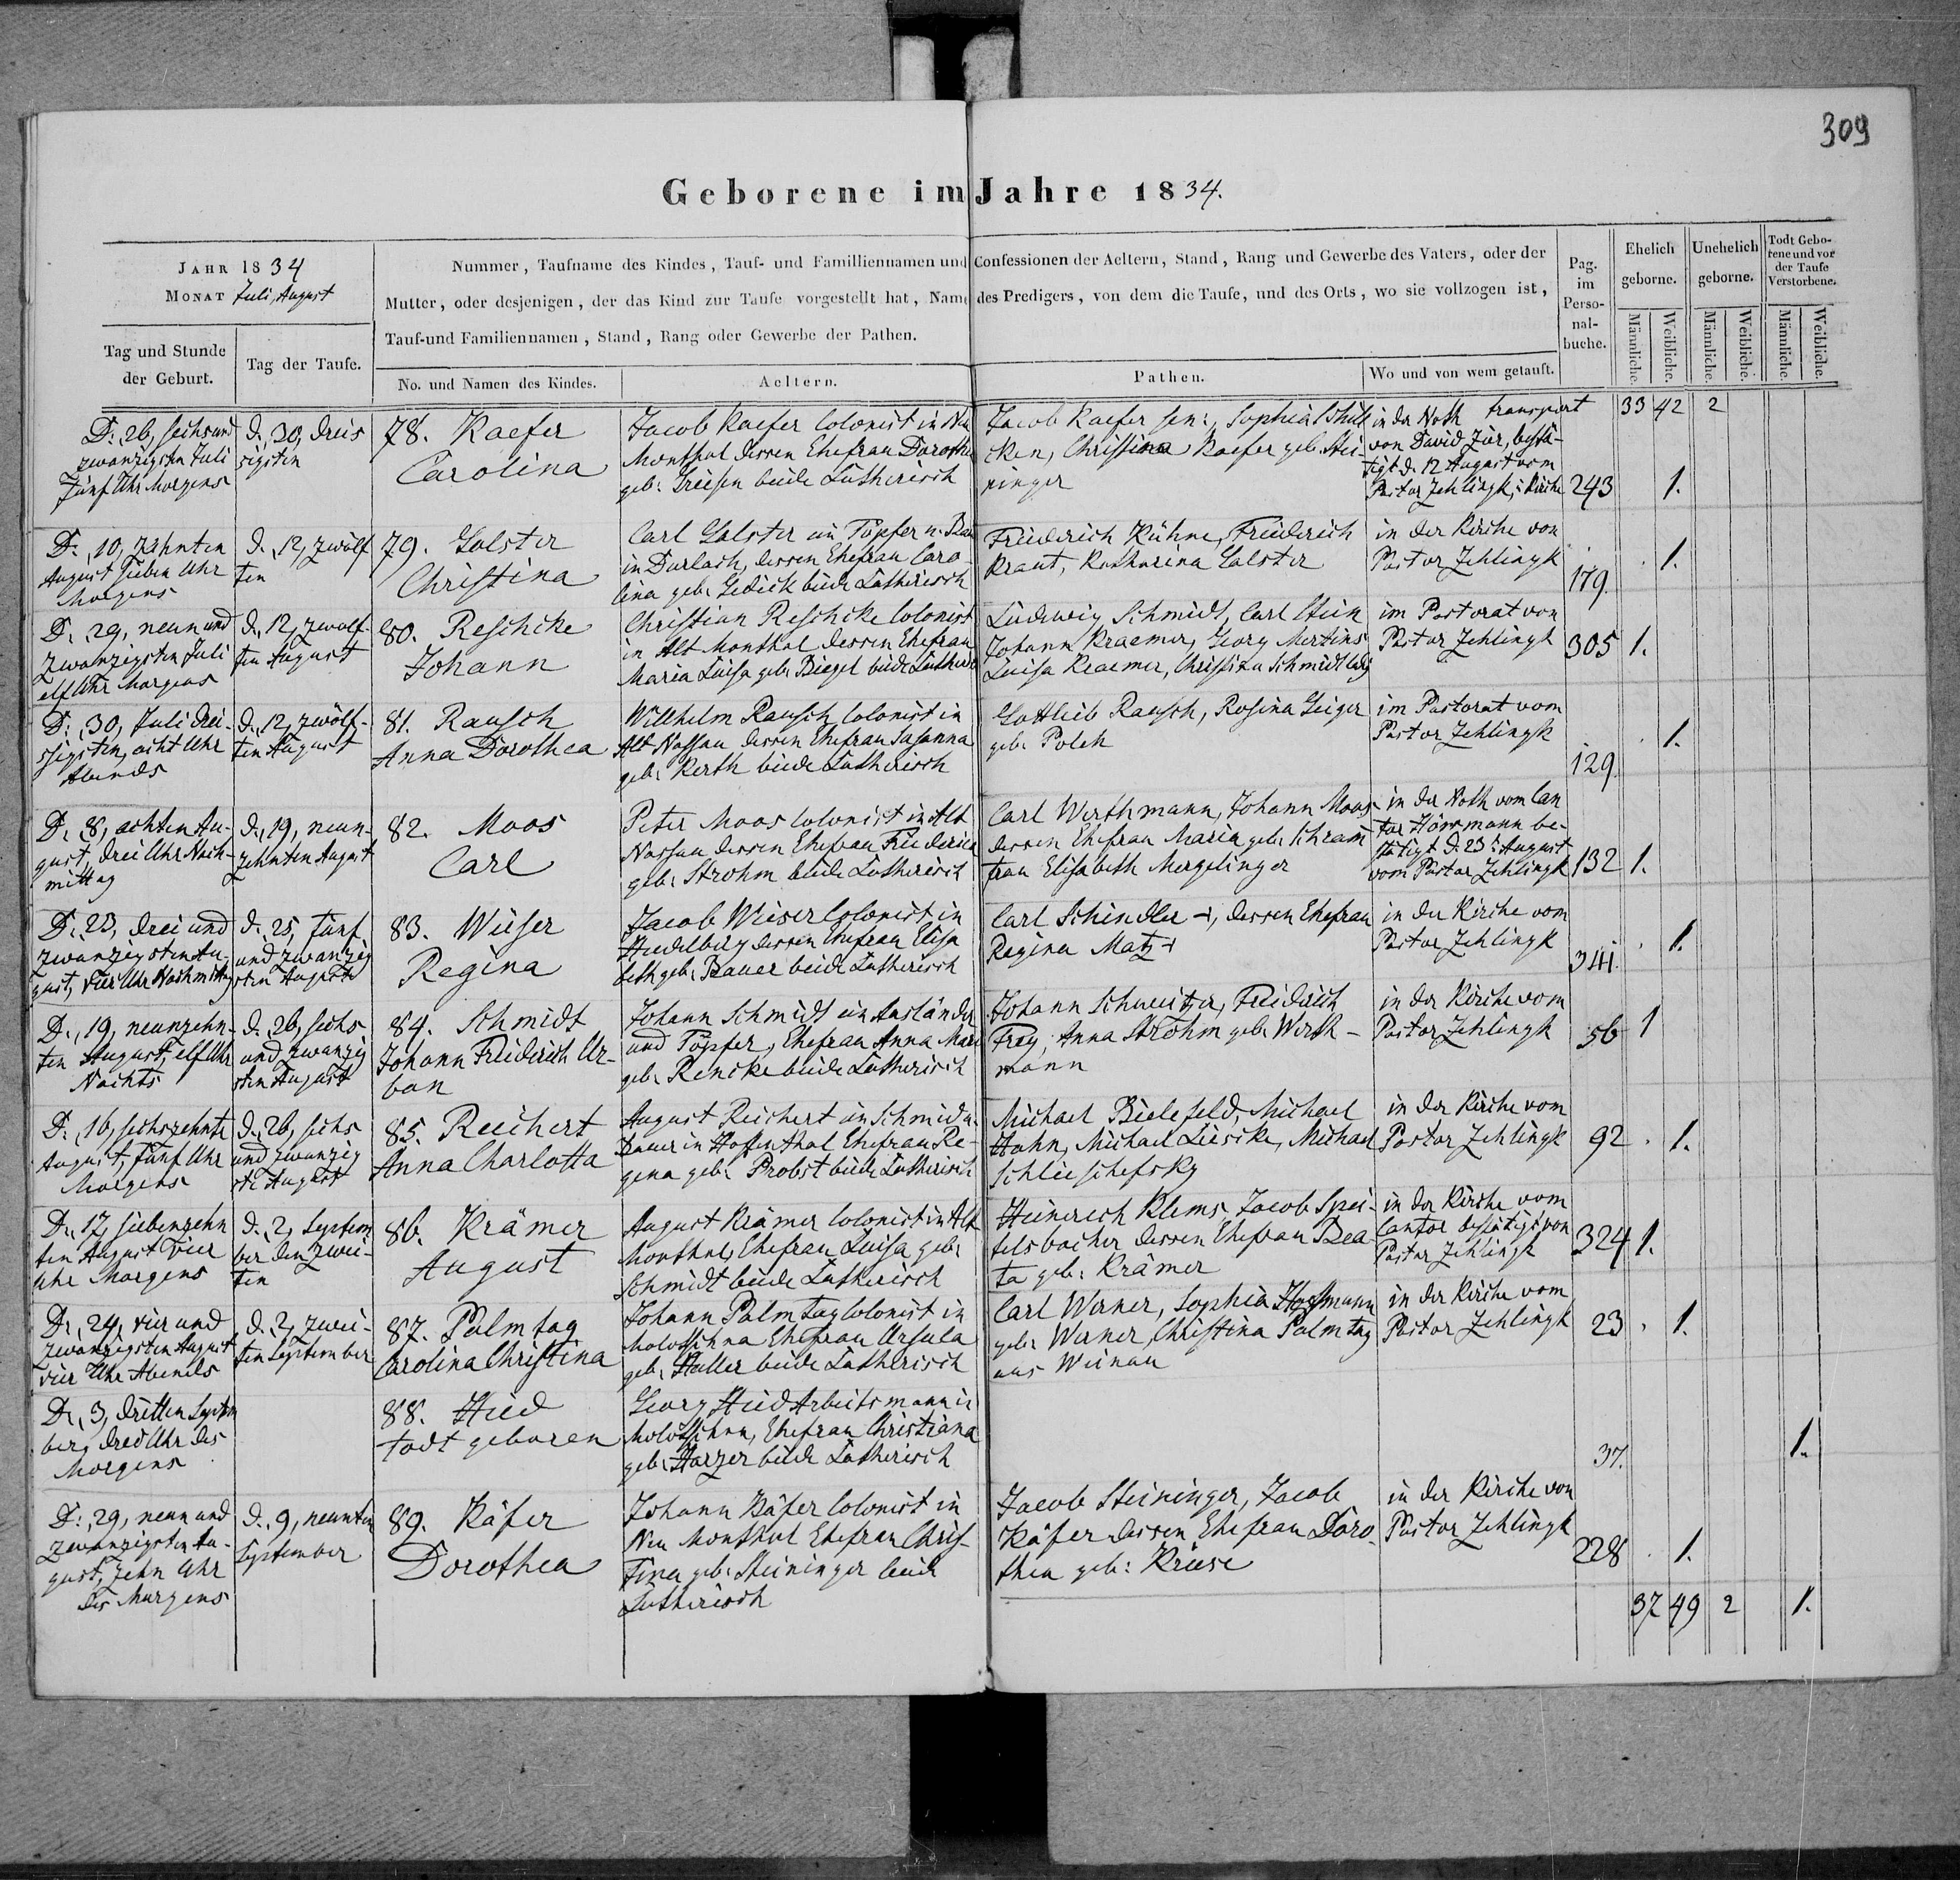 309
Geborene im Jahre 1834.
JAHR 1834
MONAT Juli, August
Nummer, Taufname des Kindes, Tauf- und Familliennamen und Confessionen der Aeltern, Stand, Rang und Gewerbe des Vaters, oder der
Mutter, oder desjenigen, der das Kind zur Taufe vorgestellt hat, Name des Predigers, von dem die Taufe, und des Orts, wo sie vollzogen ist,
Tauf- und Familiennamen, Stand, Rang oder Gewerbe der Pathen.
Tag und Stunde
der Geburt.
Tag der Taufe.
No. und Namen des Kindes.
Aeltern.
Pathen.
Wo und von wem getauft.
Pag.
im
Perso-
nal-
buche.
Ehelich
geborne.
Unehelich
geborne.
Todt Gebo-
rene und vor
der Taufe
Verstorbene.
Männliche.
Weibliche.
Männliche.
Weibliche.
Männliche.
Weibliche.
transport 33 42 2
D. 26, sechs und
zwanzigsten Juli
fünf Uhr Morgens
d. 30, dreis
sigsten
78. Kaefer
Carolina
Jacob Kaefer Colonist in Neu
Monthal dessen Ehefrau Dorothea
geb. Griesen beide Lutherisch
Jacob Kaefer sen:, Sophia
Christina Kaefer geb. Stei-
ninger
in der Noth
von David Zür, bestä-
tigt d. 12 August vom
Pastor Zehlingk, i. Kirche
243 1.
D. 10, zehnten
August sieben Uhr
Morgens
d. 12, zwölf
ten
79. Galster
Christina
Carl Galster ein Töpfer u.
in Durlach, dessen Ehefrau Caro-
lina geb. Gedick beide Lutherisch
Friedrich Kühne, Friedrich
Kraut, Katharina Galster
in der Kirche von
Pastor Zehlingk
179. 1.
D. 29, neun und
zwanzigsten Juli
elf Uhr Morgens
d. 12, zwölf-
ten August
80. Reschke
Johann
Christian Reschke Colonist
in Alt Monthal dessen Ehefrau
Maria Luisa geb. Biegel beide Lutherisch
Ludewig Schmidt, Carl Stein
Johann Kraemer, Georg Mertins
Luisa Kraemer, Christina Schmidt
im Pastorat von
Pastor Zehlingk
305 1.
D. 30, Juli drei-
ssigsten, acht Uhr
Abends
d. 12, zwölf-
ten August
81. Rausch
Anna Dorothea
Willhelm Rausch Colonist in
Alt Nassau dessen Ehefrau Susanna
geb. Kerth beide Lutherisch
Gottlieb Rausch, Rosina Geiger
geb. Polch
im Pastorat vom
Pastor Zehlingk
129. 1.
D. 8, achten Au-
gust, drei Uhr Nach-
mittag
d. 19, neun-
zehnten August
82. Moos
Carl
Peter Moos Colonist in Alt
Nassau dessen Ehefrau Friederica
geb. Strohm beide Lutherisch
Carl Werthmann, Johann Moos
dessen Ehefrau Maria geb. Schram
frau Elisabeth Mergelinger
in der Noth vom Can
tor Hörrmann be-
stätigt d. 23 August
vom Pastor Zehlingk
132 1.
D. 23, drei und
zwanzigsten Au-
gust, vier Uhr Nachmittag
d. 25, fünf
und zwanzig
sten August
83. Wieser
Regina
Jacob Wieser Colonist in
Heidelberg dessen Ehefrau Elisa
beth geb. Bauer beide Lutherisch
Carl Schindler +, dessen Ehefrau
Regina Matz +
in der Kirche vom
Pastor Zehlingk
341. 1.
D. 19, neunzehn-
ten August, elf Uhr
Nachts
d. 26, sechs
und zwanzig
sten August
84. Schmidt
Johann Friedrich Ur-
ban
Johann Schmidt ein Ausländer
und Töpfer, Ehefrau Anna Maria
geb. Rencke beide Lutherisch
Johann Schweitzer, Friedrich
Frey, Anna Strohm geb. Werth-
mann
in der Kirche vom
Pastor Zehlingk
56 1
D. 16, sechszehnte
August, fünf Uhr
Morgens
d. 26, sechs
und zwanzig
ste August
85. Reichert
Anna Charlotta
August Reichert ein Schmid u.
Bauer in Hoffenthal Ehefrau Re-
gina geb. Probst beide Lutherisch
Michael Bielefeld, Michael
Hahn, Michael Lieske, Michael
Schlieschefsky
in der Kirche vom
Pastor Zehlingk
92 1.
D. 17, siebenzehn
ten August vier
Uhr Morgens
d. 2, Septem
ber den zwei-
ten
86. Krämer
August
August Krämer Colonist in Alt
Monthal, Ehefrau Luisa geb.
Schmidt beide Lutherisch
Heinrich Klems, Jacob Spei-
telsbacher dessen Ehefrau Bea-
ta geb. Krämer
in der Kirche vom
Cantor bestätigt von
Pastor Zehlingk
324 1.
D. 24, vier und
zwanzigsten August
vier Uhr Abends
d. 2, zwei-
ten September
87. Palmtag
Carolina Christina
Johann Palmtag Colonist in
Molotschna Ehefrau Ursula
geb. Haller beide Lutherisch
Carl Werner, Sophia Hoffmann
geb. Werner, Christina Palmtag
aus Weinau
in der Kirche vom
Pastor Zehlingk
23 1.
D. 3, dritten Septem
ber, drei Uhr des
Morgens
88. Hied
todt geboren
Georg Hied Arbeitsmann in
Molotschna, Ehefrau Christiana
geb. Harzer beide Lutherisch
37. 1.
D. 29, neun und
zwanzigsten Au-
gust, zehn Uhr
des Morgens
d. 9, neunten
September
89. Käfer
Dorothea
Johann Käfer Colonist in
Neu Monthal Ehefrau Chris-
tina geb. Steininger beide
Lutherisch
Jacob Steininger, Jacob
Käfer dessen Ehefrau Doro-
thea geb: Kriese
in der Kirche von
Pastor Zehlingk
228 1.
37 49 2 1.